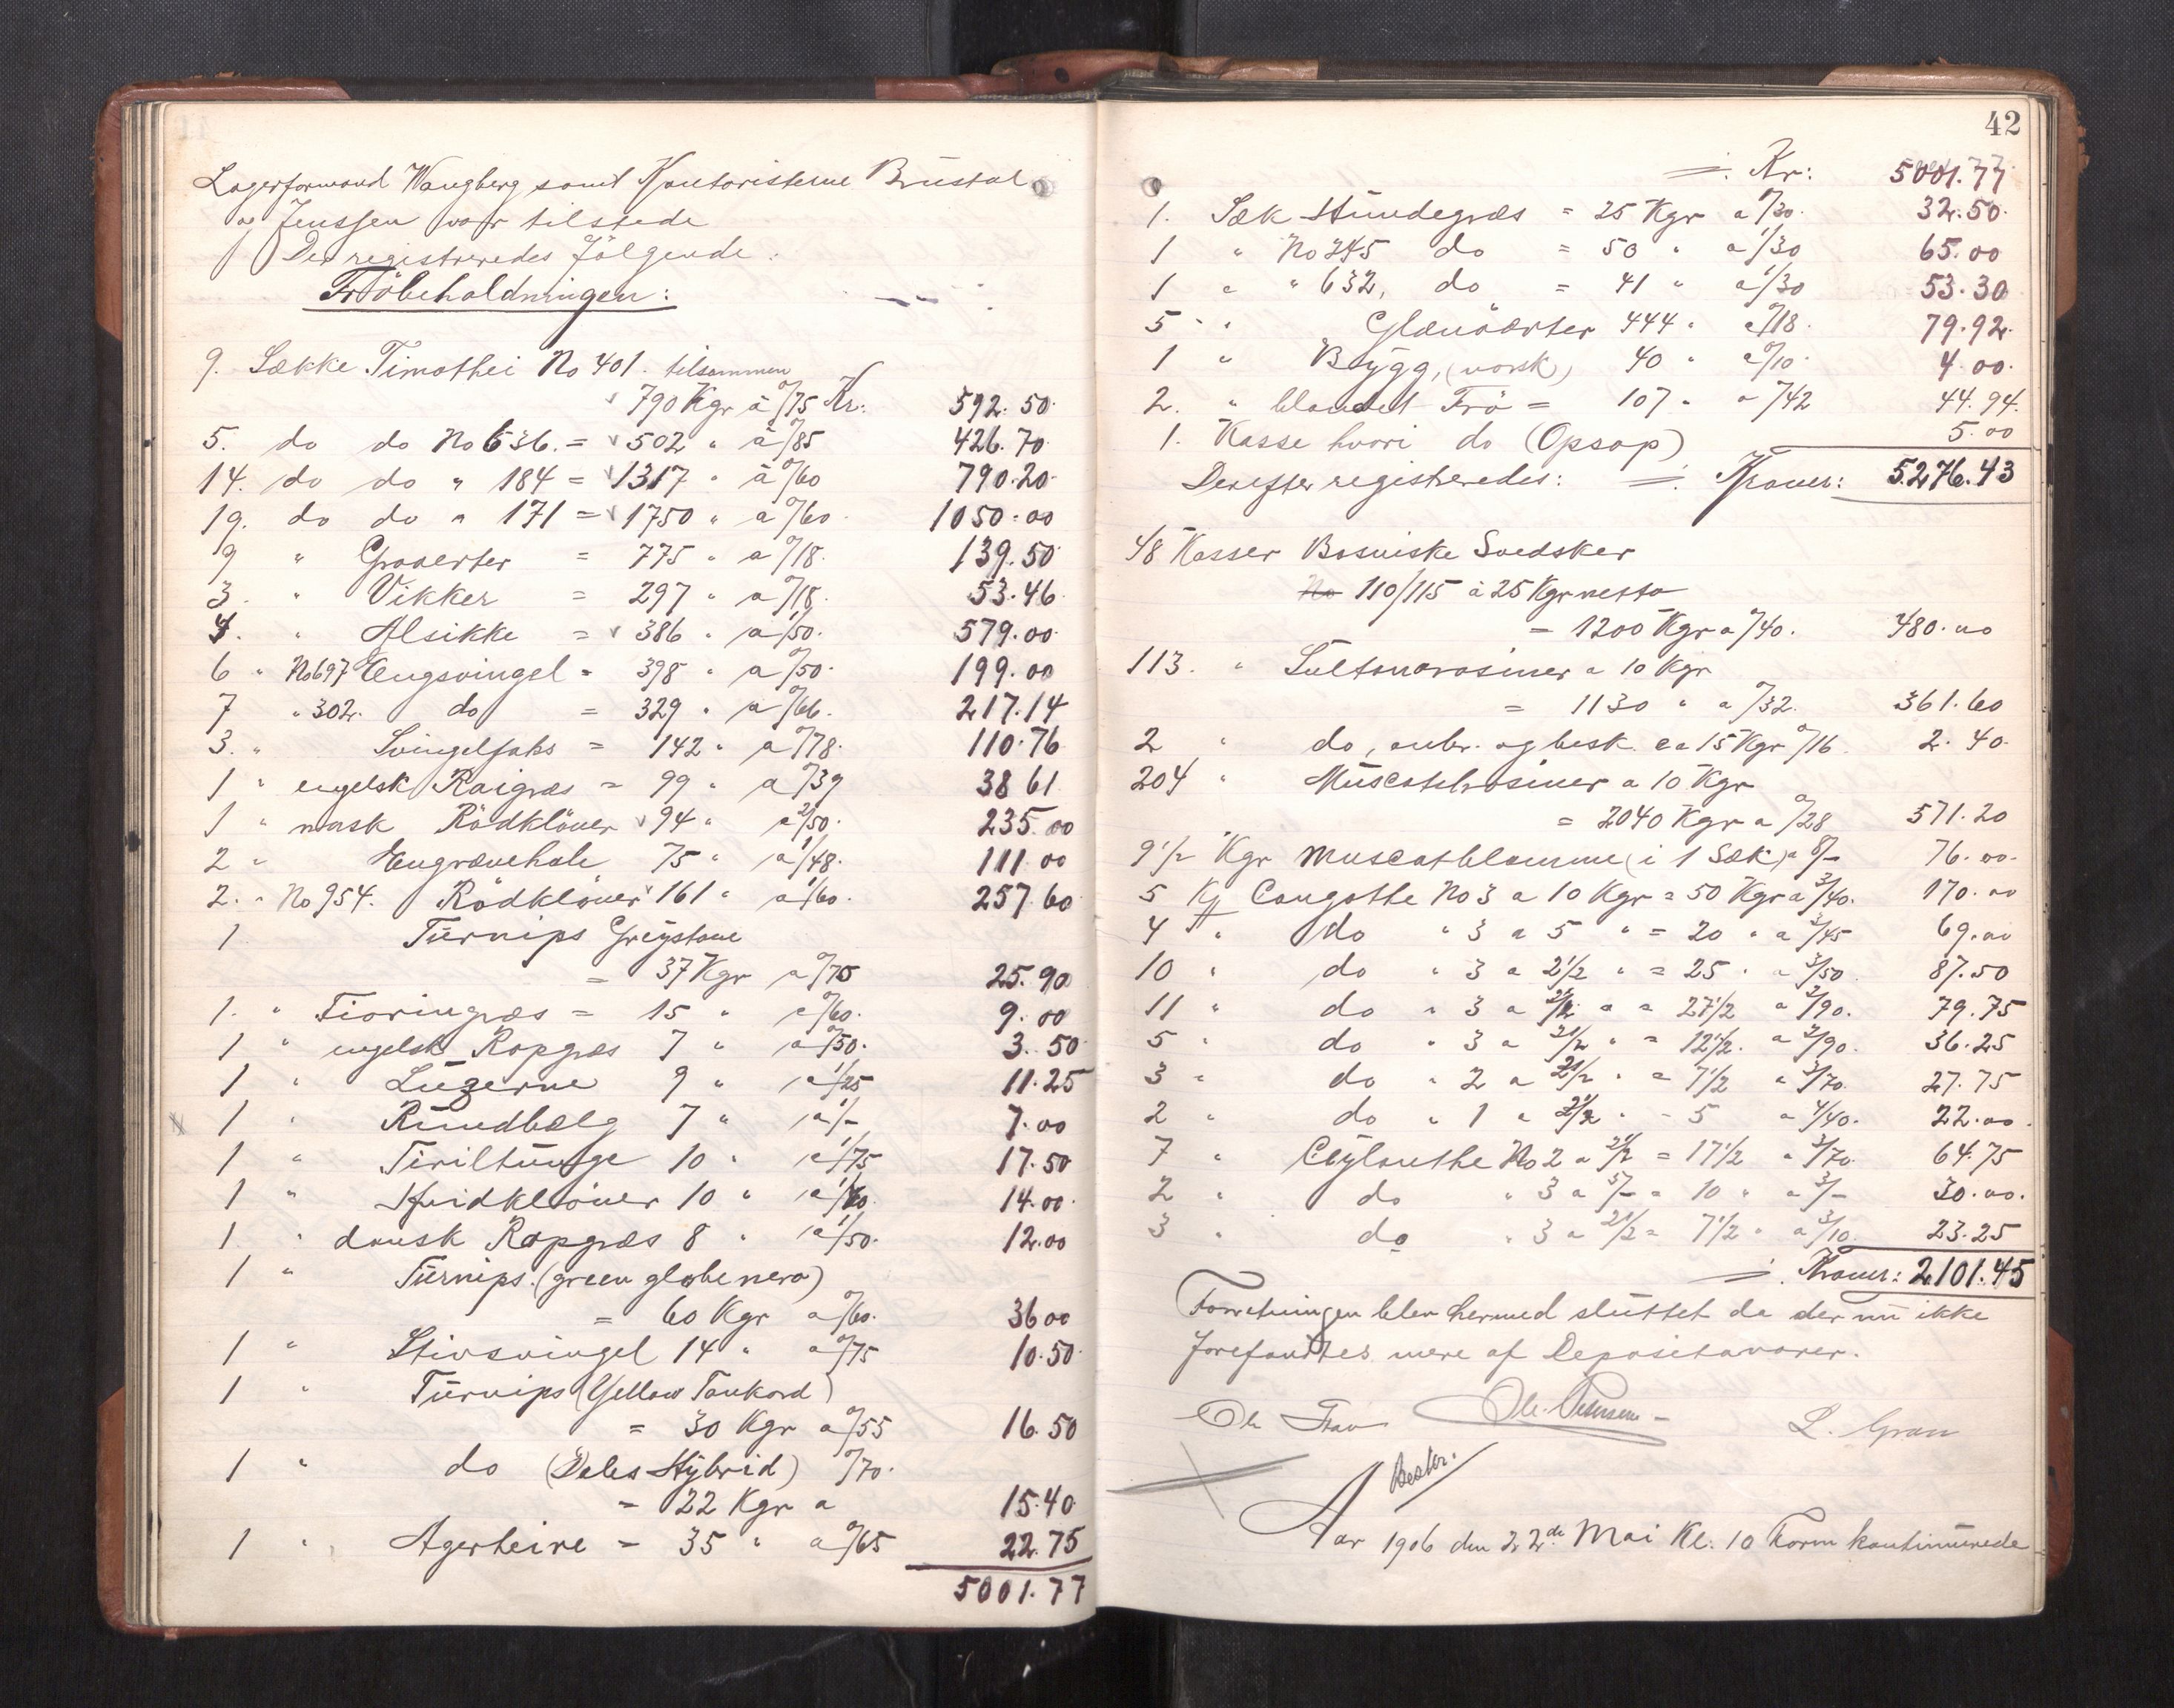 Lagerformand Wangberg samt Kontoristerne Brustad
og Jenssen var tilstede
Der registreredes følgende:
Fröbeholdningen:
9. Sække Timothei No 401. tilsammen
790 Kgr à 0/75 Kr: 592.50
5. do do No 636. = 502 " à 0/85 426.70
14. do do " 184 = 1317 " à 0/60 790.20
19. do do " 171 = 1750 " a 0/60 1050.00
9 " Graaerter = 775 " a 0/18. 139.50
3. " Vikker = 297 " a 0/18. 53.46
4. " Alsikke = 386 " a 1/50. 579.00
6 " No 697 Engsvingel = 398 " a 0/50. 199.00
7 " 302. do = 329 " a 0/66. 217.14
3. " Svingelfaks = 142 " a 0/78. 110.76
1 " engelsk Raigræs = 99 " a 0/39 38 61
1 " norsk Rödklöver 94 " a 2/50. 235.00
2 " Engrævehale 75 " a 1/48. 111 00
2. " No 954. Rödklöver 161 " a 1/60. 257.60
1 Turnips Greystone
= 37 Kgr a 0/70 25.90
1. " Fioringræs = 15 " a 0/60. 9.00
1 " engelsk Rapgræs 7 " a 0/50. 3.50
1 " Luzerne 9 " a 1/25 11.25
1 " Rundbælg 7 " a 1/- 7.00
1 " Tiriltunge 10 " a 1/75 17.50
1 " Hvidklöver 10 " a 1/40. 14.00
1 " dansk Rapgræs 8 " a 1/50. 12.00
1 " Turnips. (green globe nera)
= 60 Kgr a 0/60. 36 00
1 " Stivsvingel 14 " a 0/75 10.50
1 " Turnips (Yellow Tankard)
= 30 Kgr a 0/55 16.50
1 " do (Dales Hybrid) 0/70.
= 22 Kgr a 15.40
1 " Agerheire = 35 " a 0/65 22.75
5001.77
42
Kr: 5001.77
1. Sæk Hundegræs = 25 Kgr a 1/30. 32.50
1 " No 345 do = 50 " a 1/30 65.00
1 " " 632, do = 41 " a 1/30 53.30
5 " " Glænöærter 444 " a 0/18. 79.92
1 " Bygg, (norsk) 40 " a 0/10. 4.00.
2. " blandet Frö = 107 " a 0/42 44.94.
1. Kasse hvori do (Opsop) 5.00
Derefter registreredes: Kroner: 5.276.43
48 Kasser Bosniske Svedsker
No 110/115 à 25 Kgr netto
= 1200 Kgr a 0/40. 480.00
113. " Sultanarosiner a 10 Kgr
= 1130 " a 0/32. 361.60
2 " do, anbr. og besk. ca 15 Kgr 0/16 2.40
204 " Muscatelrosiner a 10 Kgr
= 2040 Kgr a 0/28 571.20
9 1/2 Kgr Muscatblomme (i 1 Sæk) a 8/- 76.00.
5 Kg Congothe No 3 a 10 Kgr = 50 Kgr a 3/40. 170.00
4 " do " 3 a 5 " = 20 " a 3/45 69.00
10 " do " 3 a 2 1/2 " = 25 " a 3/50 87.50
11 " do " 3 a 2 1/2 " = 27 1/2 a 2/90. 79.75
5 " do " 3 a 2 1/2 " = 12 1/2. a 2/90. 36.25
3 " do " 2 a 2 1/2 " = 7 1/2 a 3/70. 27.75
2 " do " 1 a 2 1/2 " = 5 a 4/40. 22.00
7 " Ceylonthe No 2 a 2 1/2 = 17 1/2 " 3/70. 64.75
2 " do " 3 a 5/- = 10 " a 3/- 30.00.
3 " do " 3 a 2 1/2 = 7 1/2 " a 3/10. 23.25
Kroner: 2.101.45
Forretningen blev hermed sluttet da der nu ikke
forefandtes mere af Depositavarer.
Ole Ole Petersen L. Gran
Beskr:
Aar 1906 den 22de Mai Kl. 10 Form kontinuerede